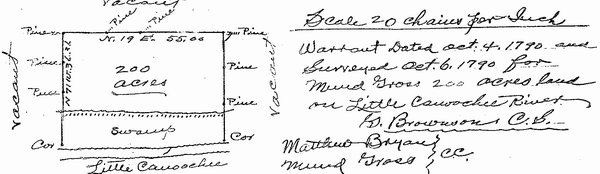 Vacant
Pine
Pine
Pine
Pine
N. 19 E. 55.00
Pine
Pine
Pine
N 71 W 36.32
Vacant
200
acres
Pine
Pine
Vacant
Swamp
Cor
Cor
Little Canoochee
Scale 20 chains per Inch
Warrant Dated Oct. 4. 1790 and
Surveyed Oct. 6. 1790 for
Mund Gross 200 acres land
on Little Canoochee River
D. Brownson C.S.
Matthew Bryan
Mund Gross } CC.